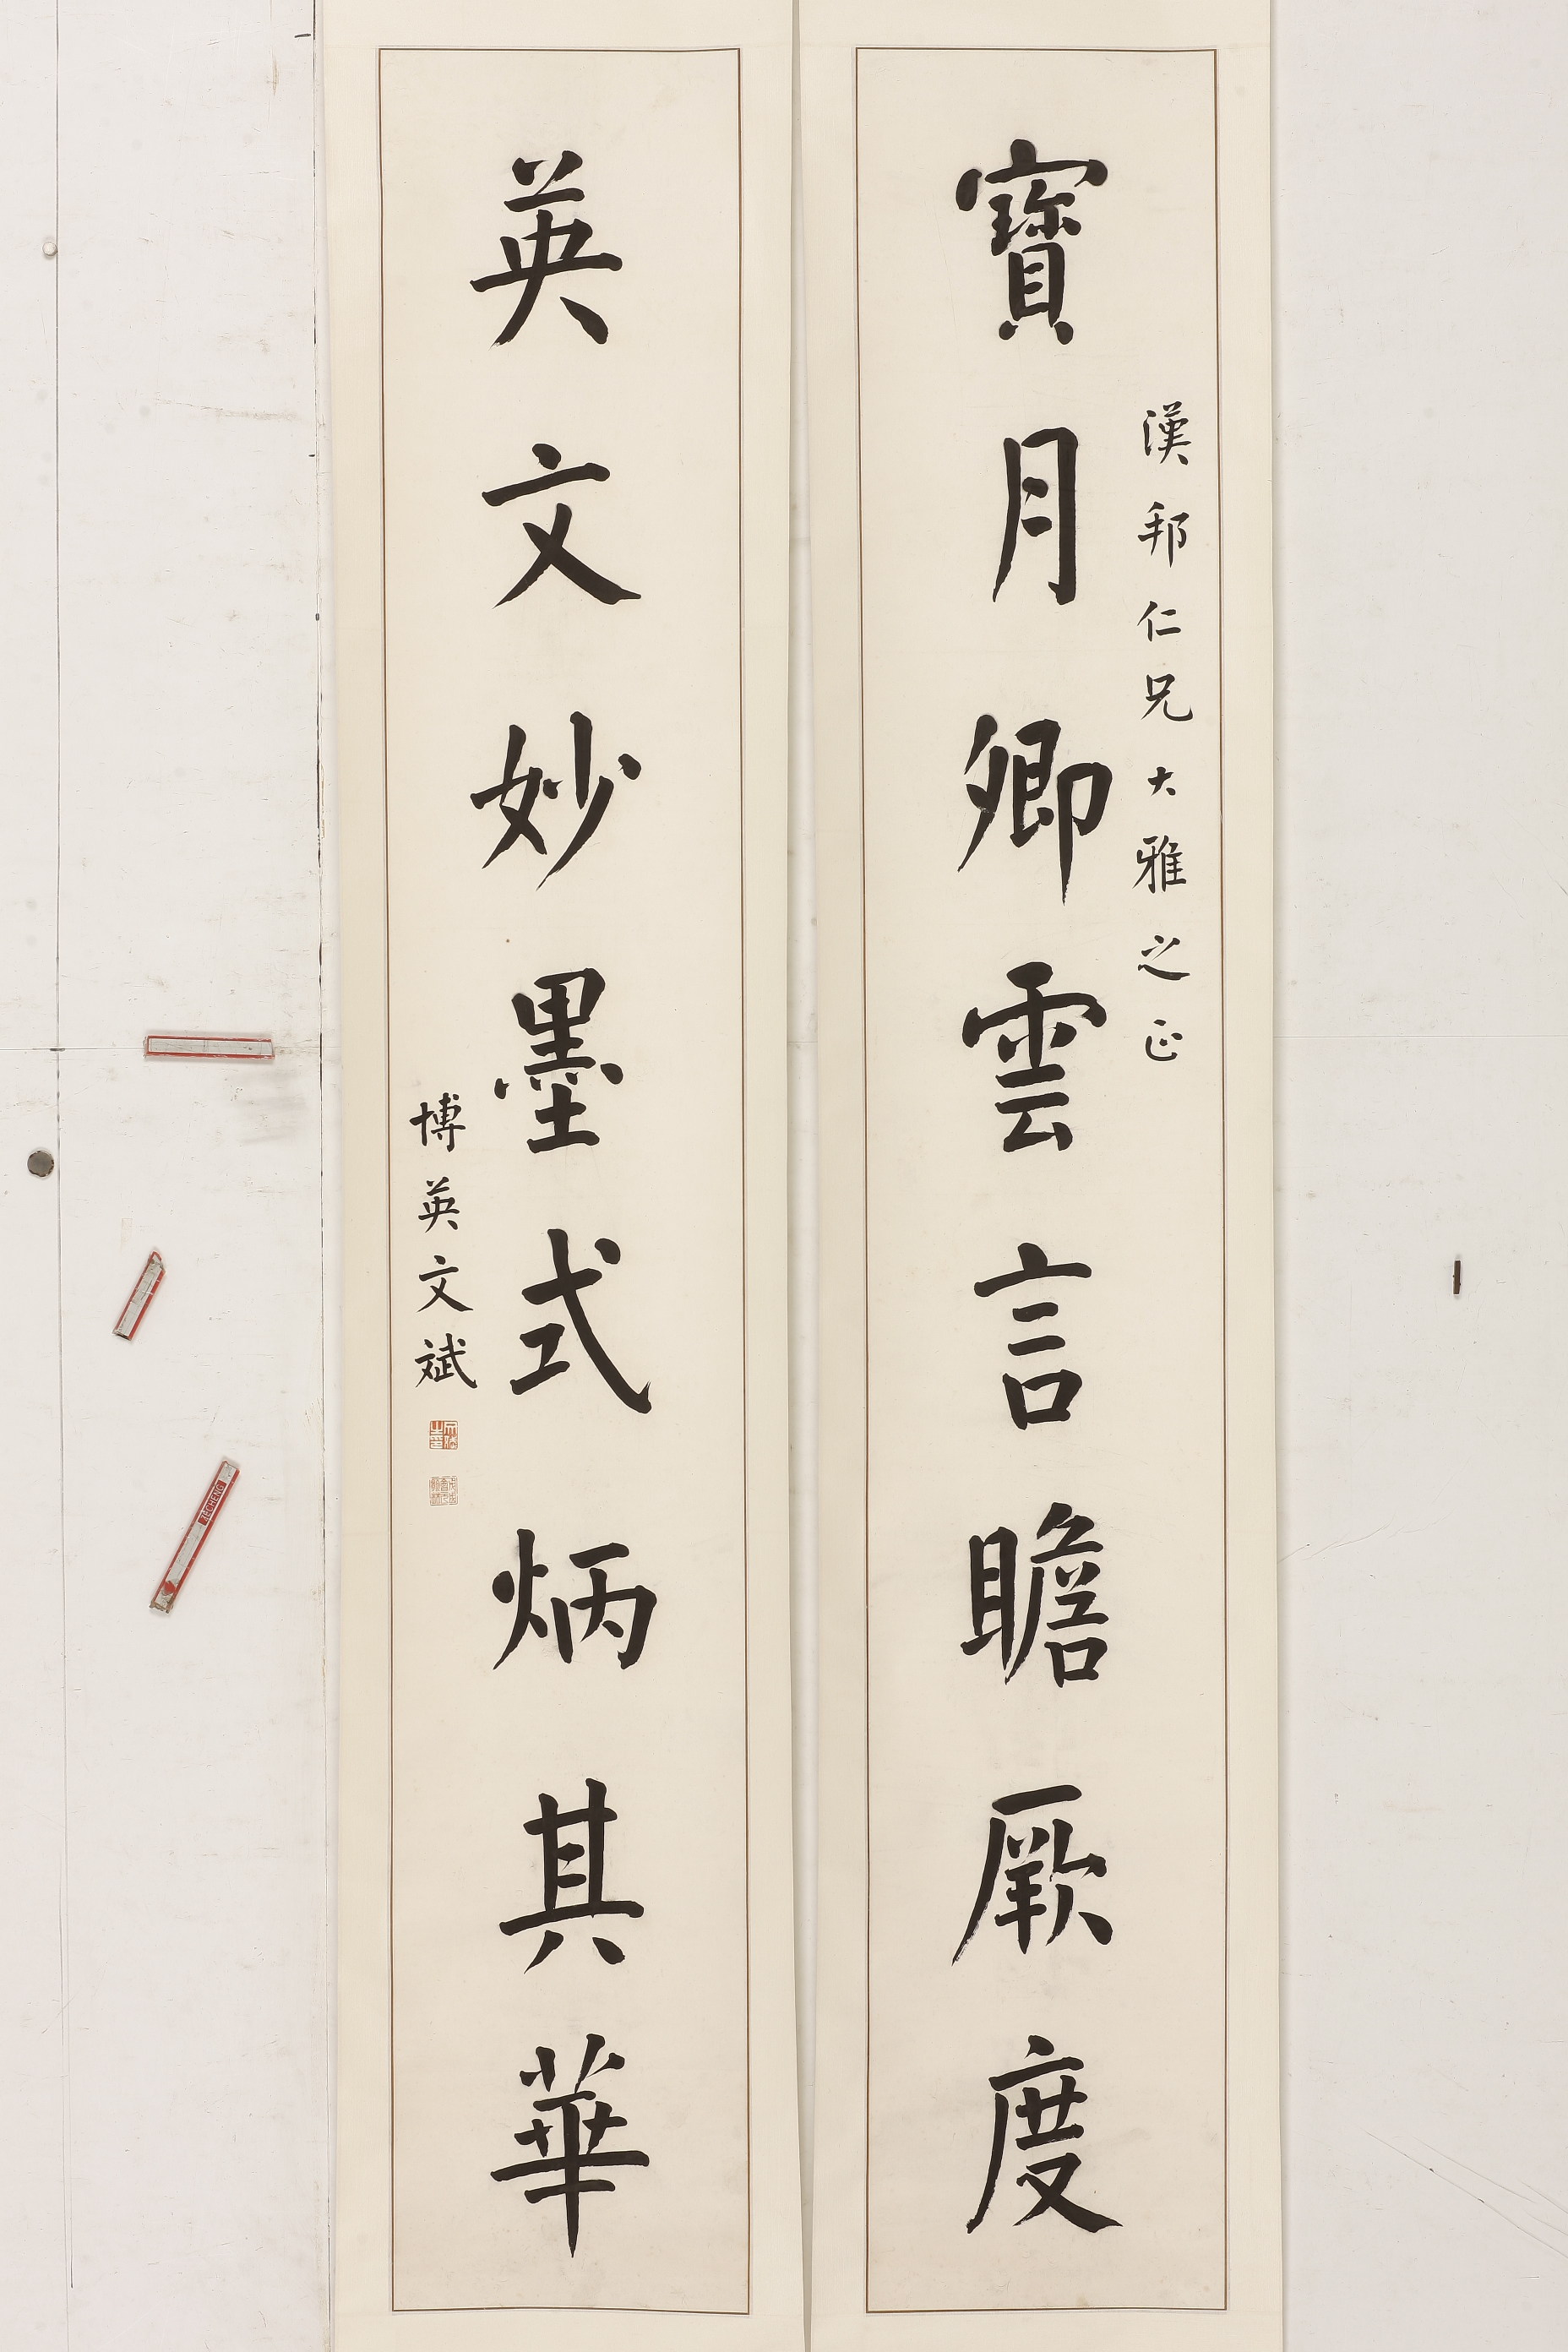 漢邦仁兄大雅之正
寶月卿雲言瞻厥度
英文妙墨式炳其華
博英文斌